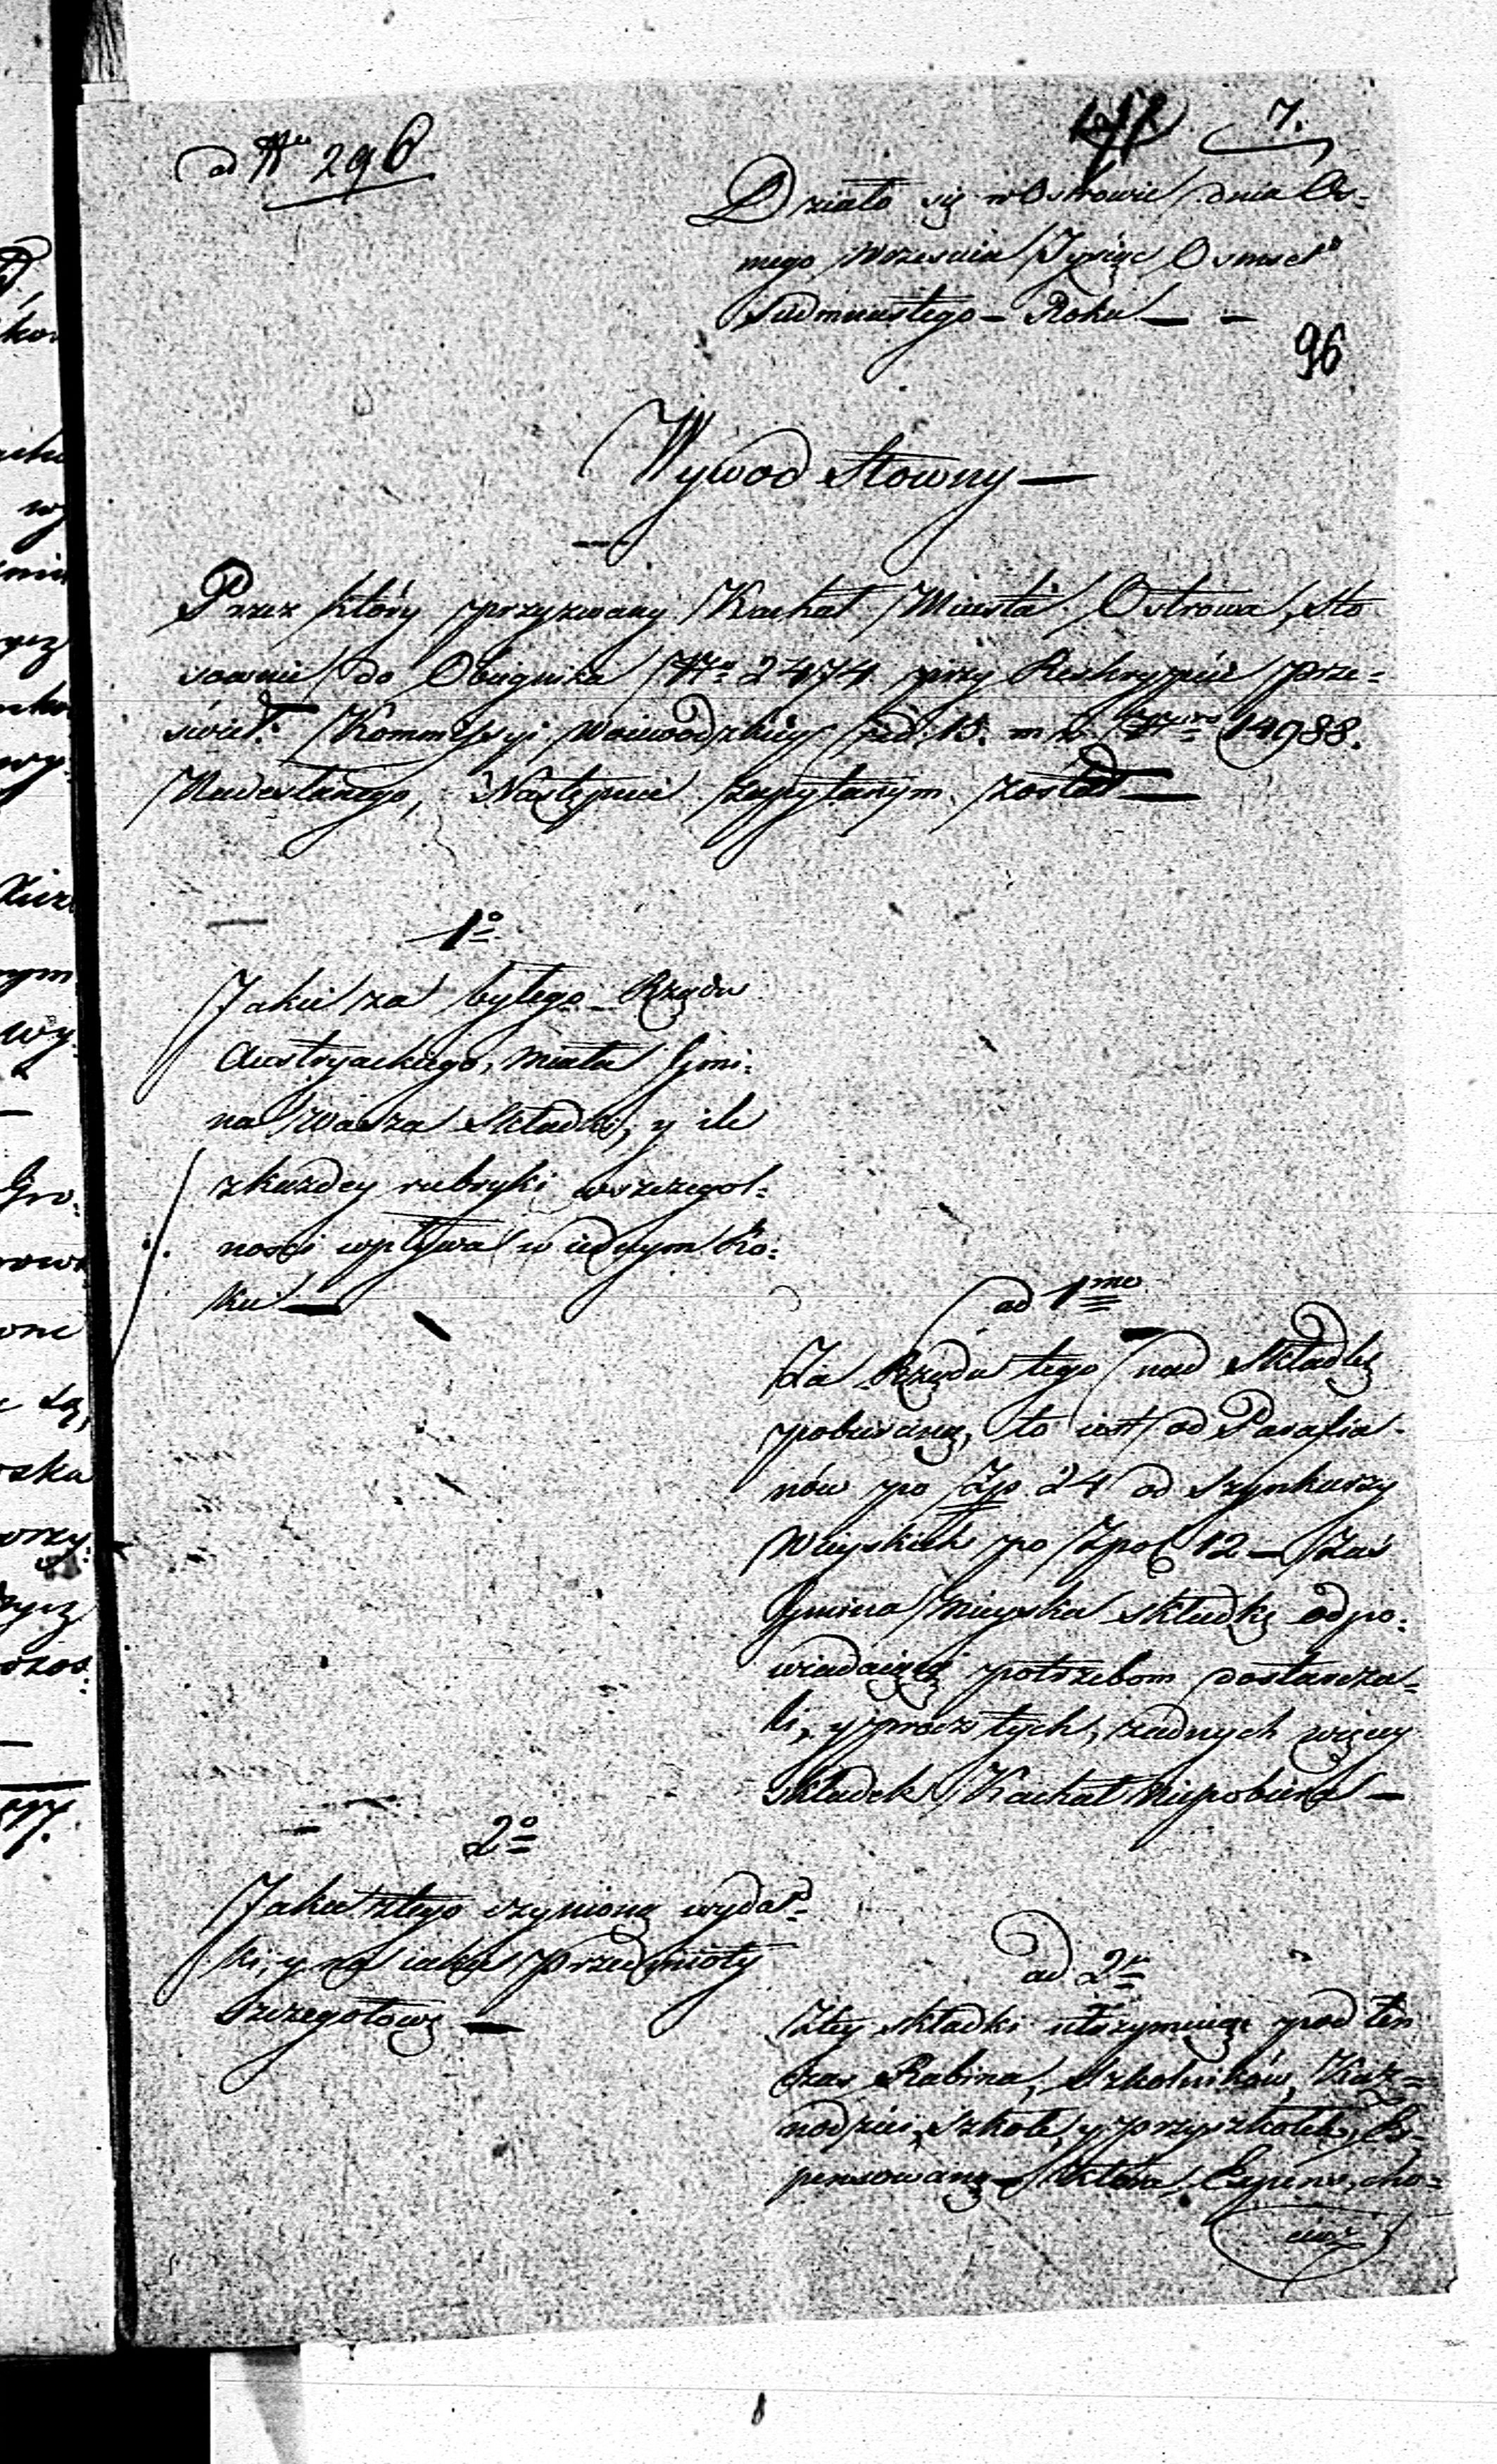 ad Nr 296
7.
Działo się w Ostrowie dnia Os=
mego Września Tysiąc Osmset
Siedmnastego – Roku – –
96
Wywod Słowny –
Przez który przyzwany Kachał Miasta Ostrowa, sto
sownie do Obiegnika Nro 2474 przy Reskrypcie prze=
świet: Kommissyi Woiewodzkiey pod 15. m. b. Nro 14988.
Nadesłanego, Następnie zapytanym został –
1o
Jakie za byłego Rządu
Austryackiego, miała Gmi=
na wasza składki, y ile
z każdey rubryki wszczegol=
ności wpływa w iednym Ro=
ku –
ad 1mo
Za Rządu tego nad składkę
pobieraną, to iest od Parafia-
nów po Zp. 24 od Szynkarzy
Wieyskich po Zpol 12 – Zaś
Gmina Mieyska składkę odpo=
wiadaiącą potrzebom dostarcza=
li, y procz tych, żadnych więcey
składek Kachał niepobierał –
2o
Jakie z tego czyniono wydat=
ki, y na iakie przedmioty
Szczegołowe –
ad 2
Z tey składki utrzymuiąc pod ten
czas Rabina, Szkolników, Kaz=
nodziei, Szkołę, y przyszkołek, Ex=
pensowano – Która Expens, cho=
ciaz